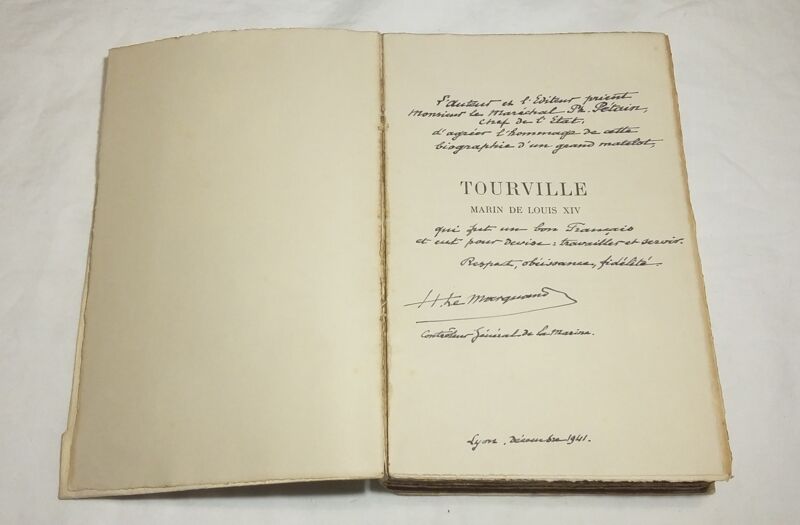 L'auteur et l'Editeur prient
Monsieur le Maréchal Ph. Pétain,
Chef de l'Etat,
d'agréer l'hommage de cette
biographie d'un grand matelot,
TOURVILLE
MARIN DE LOUIS XIV
qui fut un bon Français
et eut pour devise : travailler et servir.
Respect, obéissance, fidélité.
H. Le Marquand
Contrôleur Général de la Marine.
Lyon, Décembre 1941.